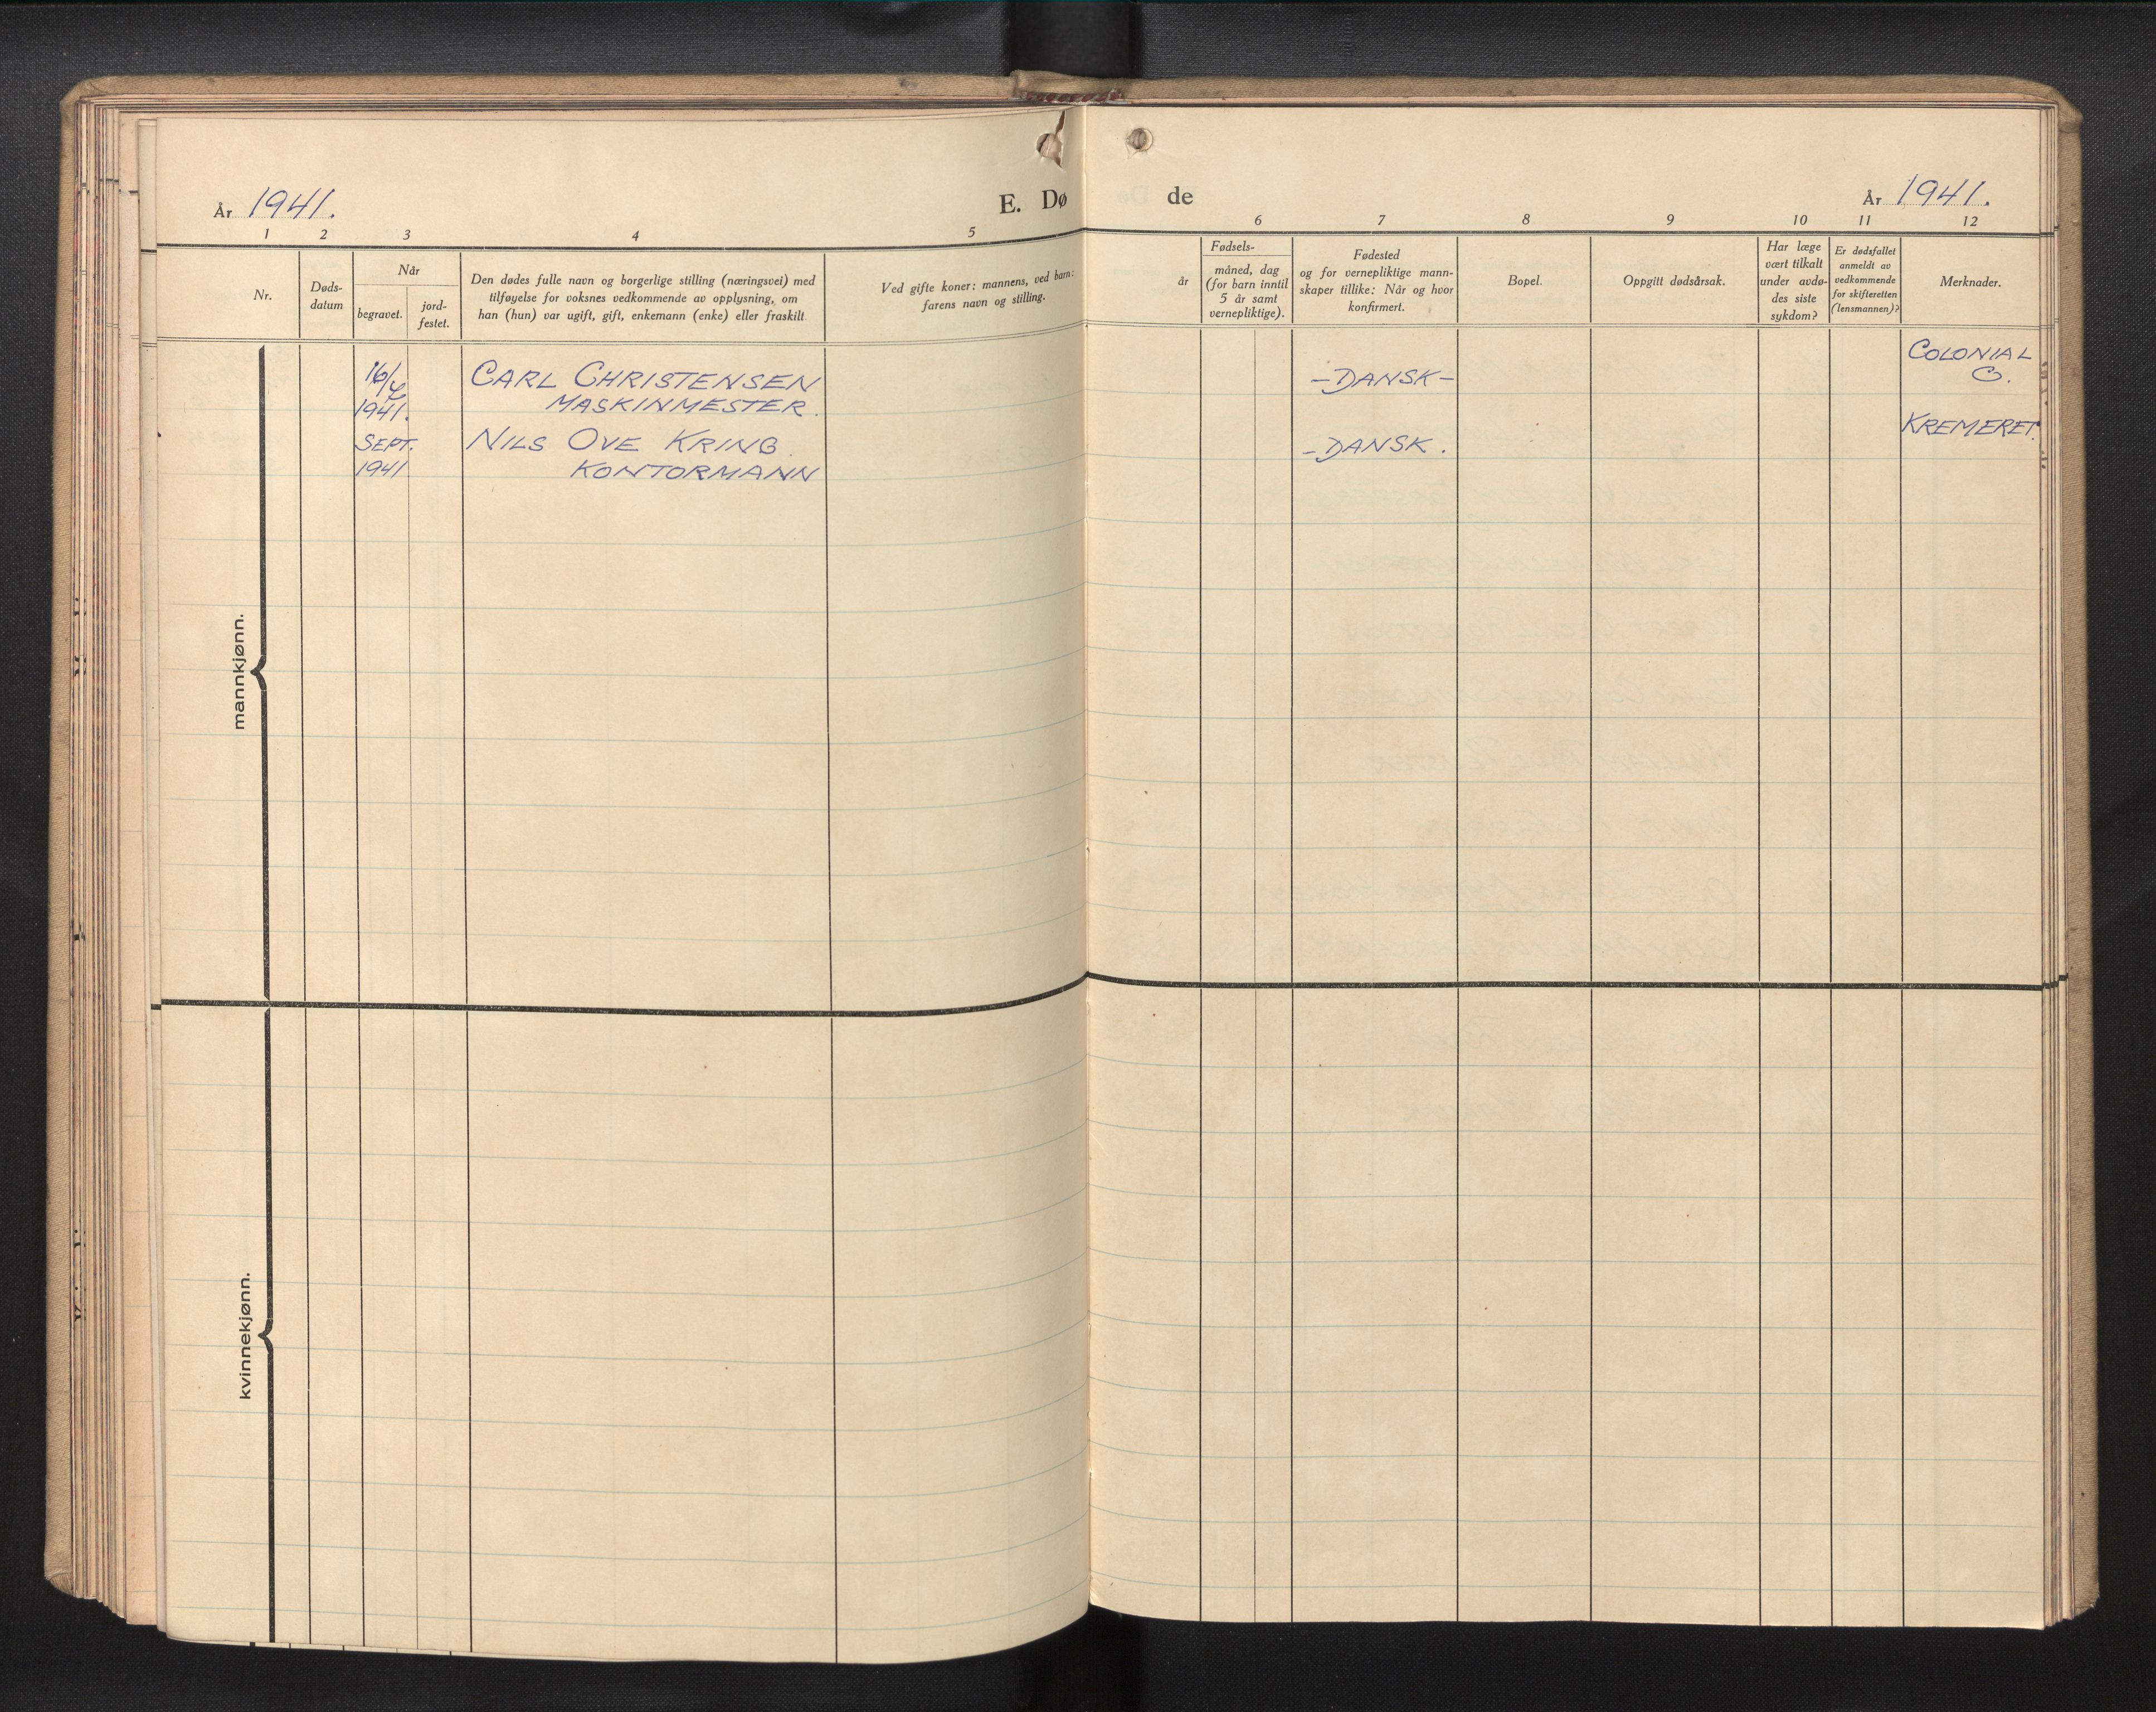 År 1941.
E. Dø
de
År 1941.
1 2 3 4 5
6 7 8 9 10 11 12
Nr.
Døds-
datum
Når
begravet.
jord-
festet.
Den dødes fulle navn og borgerlige stilling (næringsvei) med
tilføyelse for voksnes vedkommende av opplysning, om
han (hun) var ugift, gift, enkemann (enke) eller fraskilt
Ved gifte koner: mannens, ved barn:
farens navn og stilling.
år
Fødsels-
måned, dag
(for barn inntil
5 år samt
vernepliktige).
Fødested
og for vernepliktige mann-
skaper tillike: Når og hvor
konfirmert.
Bopel.
Oppgitt dødsårsak.
Har læge
vært tilkalt
under avdø-
des siste
sykdom?
Er dødsfallet
anmeldt av
vedkommende
for skifteretten
(lensmannen)?
Merknader.
mannkjønn.
CARL CHRISTENSEN
1941. MASKINMESTER.
-DANSK-
COLONIAL
CO.
SEPT. NILS OVE KRING.
1941 KONTORMANN
-DANSK.
KREMERET.
kvinnekjønn.